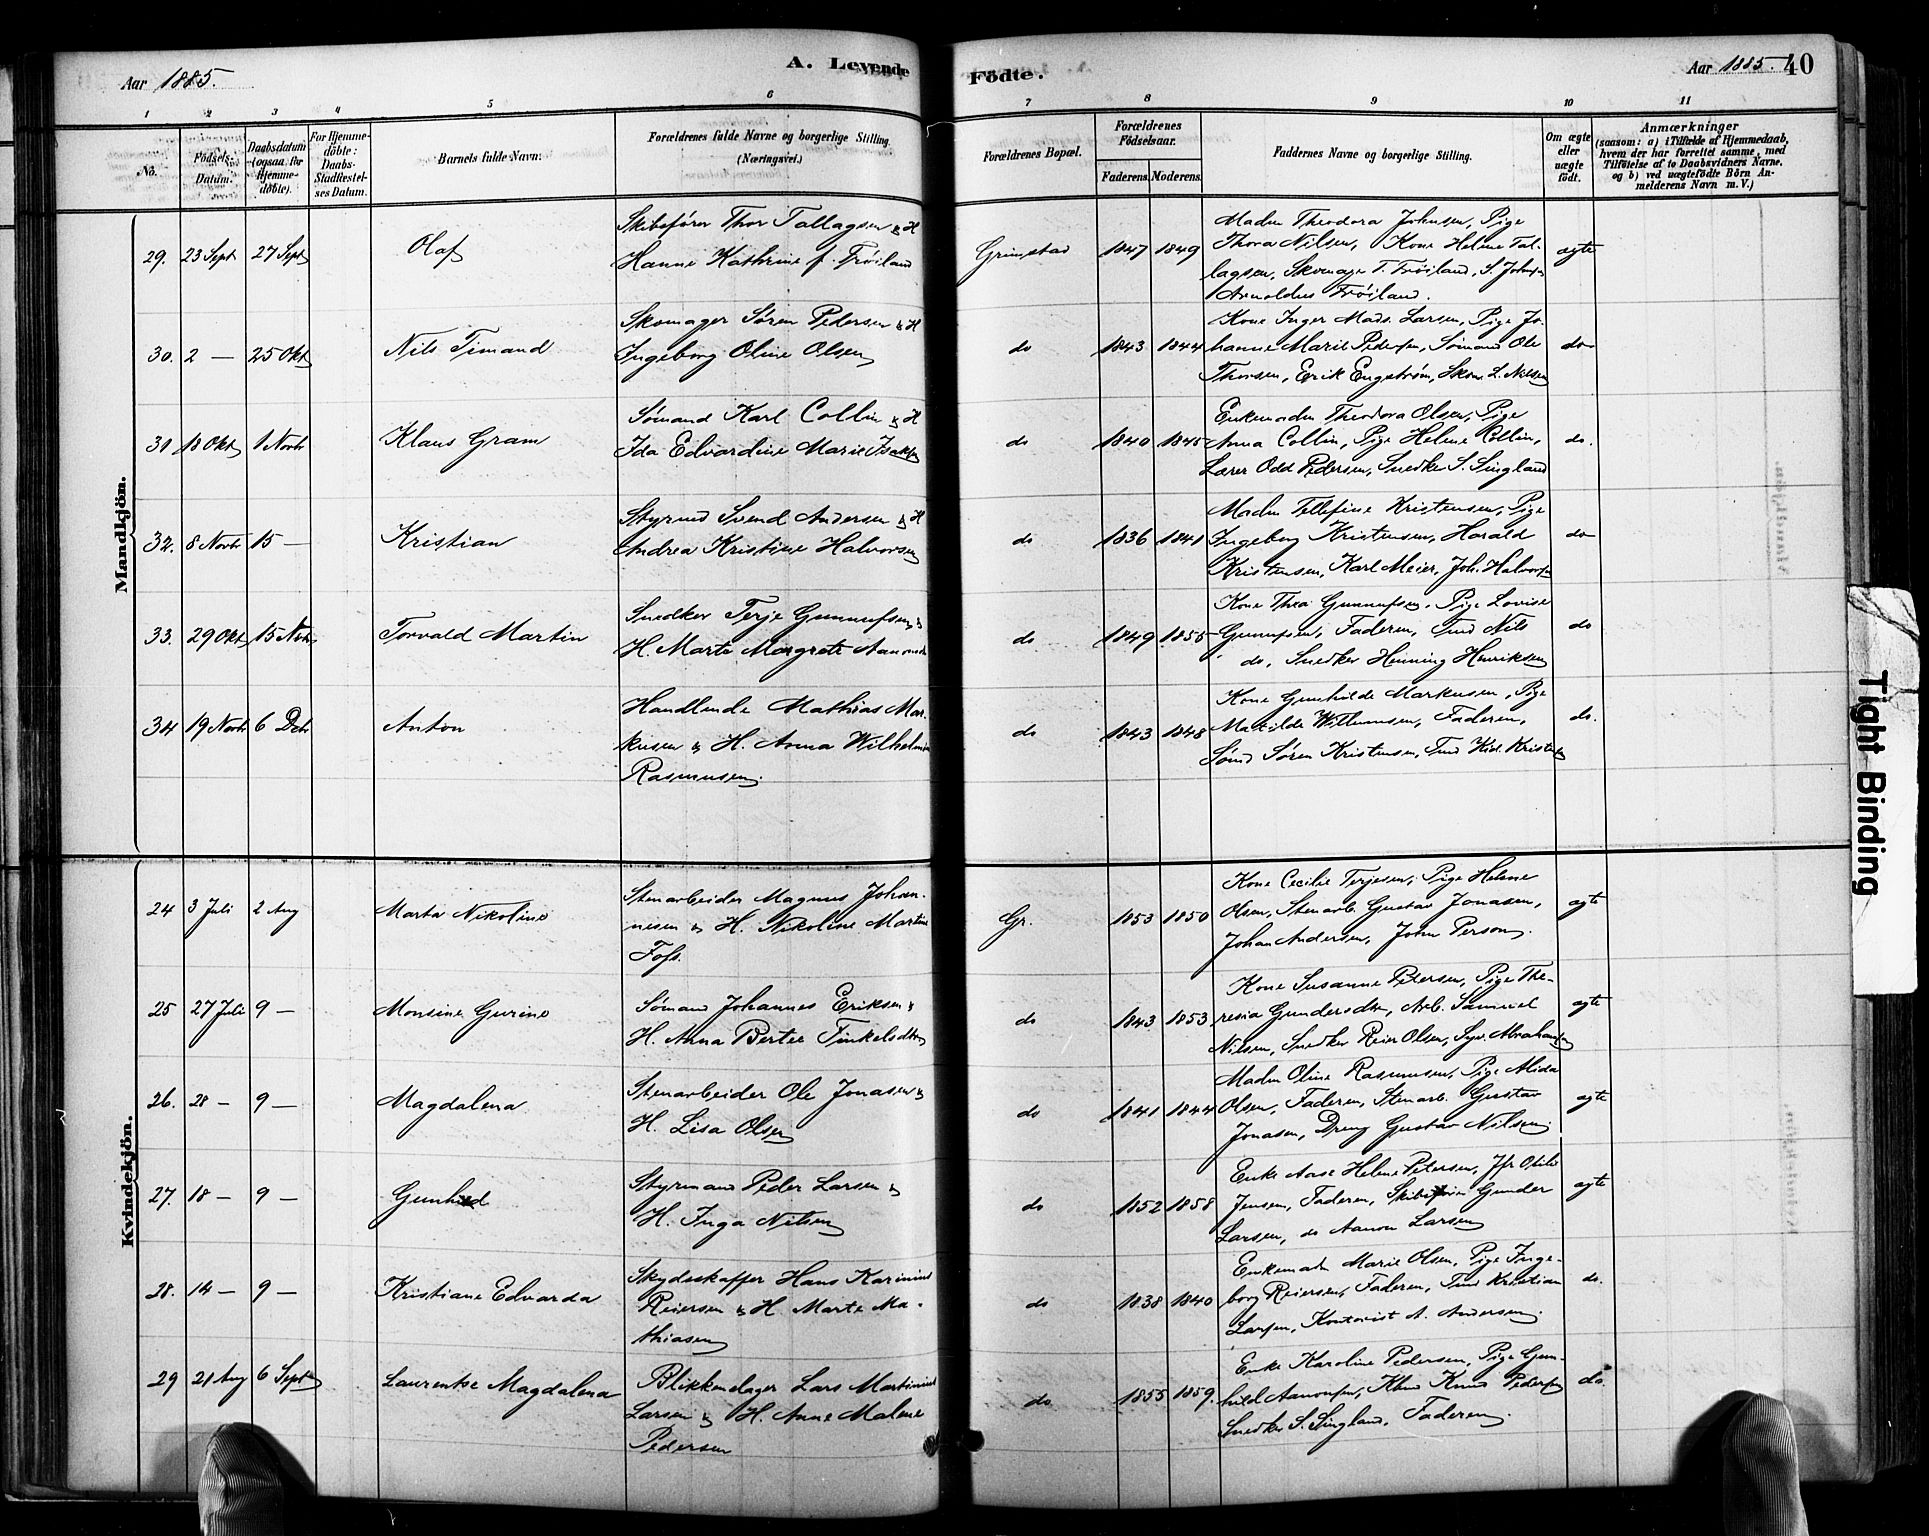 Aar 1885.
A. Levende
Födte.
Aar 1885.
40
1 2 3 4 5 6 7 8 9 10 11
No.
Födsels-
Datum.
Daabsdatum
(ogsaa for
Hjemme-
döbte).
For Hjemme-
döbte:
Daabs-
Stadfæstel-
ses Datum.
Barnets fulde Navn.
Forældrenes fulde Navne og borgerlige Stilling.
(Næringsvei.)
Forældrenes Bopæl.
Forældrenes
Födselsaar.
Faderens. Moderens.
Faddernes Navne og borgerlige Stilling.
Om ægte
eller
uægte
födt.
Anmærkninger
(saasom: a) i Tilfælde af Hjemmedaab,
hvem der har forrettet samme, med
Tilföielse af to Daabsvidners Navne.
og b) ved uægtefödte Börn An-
melderens Navn m. V.)
Mandkjön.
29. 23 Sept 27 Sept Olaf
Skibsfører Thor Tallagsen & H
Hanne Kathrine f. Frøiland
Grimstad 1847 1849
Madm Theodora Johnsen, Pige
Thora Nilsen, Kone Helene Tal-
lagsen, Skomager T. Frøiland, S. Johnsen
Arnoldus Frøiland.
ægte
30. 2 — 25 Okt Nils Timand
Skomager Søren Pedersen & H
Ingeborg Oline Olsen
do 1843 1844
Kone Inger Mads. Larsen, Pige Jo-
hanne Marie Pedersen, Sømand Ole
Thorsen, Erik Engstrøm, Skom. L. Nilsen
do
31 18 Okt 1 Novbr Klaus Gram
Sømand Karl Collin & H
Ida Edvardine Marie Isaksen
do 1840 1845
Enkemadm Theodora Olsen, Pige
Anna Collin, Pige Helene Collin,
Lærer Odd Pedersen, Snedker S. Singland
do.
32. 8 Novbr 15 — Kristian
Styrmd Svend Andersen & H
Andrea Kristine Halvorsen
do 1836 1841
Madm Tellefine Kristensen, Pige
Ingeborg Kristensen, Harald
Kristensen, Karl Meier, Joh. Halvorsen
do
33. 29 Okt 15 Novbr Torvald Martin
Snedker Terje Gunnufsen &
H. Marte Margrete Aanonsen
do 1849 1855
Kone Thea Gunnufsen, Pige Lovise
Gunnufsen, Faderen, Tmd Nils
do, Snedker Henning Henriksen
do
34 19 Novbr 6 Debr Anton
Handlende Mathias Mar-
kusen & H. Anna Wilhelmine
Rasmussen
do 1843 1848
Kone Gunhilde Markusen, Pige
Matilde Willumsen, Faderen,
Sømd Søren Kristensen, Tmd Kristensen
do.
Kvindekjön.
24 3 Juli 2 Aug Marta Nikoline
Stenarbeider Magnus Johan-
nesen & H. Nikoline Martine
Foss.
Gr. 1853 1850
Kone Cecilie Terjesen, Pige Helene
Olsen, Stenarb. Gustav Jonasen,
Johan Andersen, John Person.
ægte
25 27 Juli 9 — Monsine Gurine
Sømand Johannes Eriksen &
H. Anna Bertee Tinkelsdtr
do 1843 1853
Kone Susanne Petersen, Pige The-
resia Gundersdtr, Arb. Samuel
Nilsen, Snedker Reier Olsen, Abrahamsen
ægte
26. 28 — 9 — Magdalena
Stenarbeider Ole Jonasen &
H. Lisa Olsen
do 1841 1844
Madm Oline Rasmussen, Pige Alida
Olsen, Faderen, Stenarb. Gustav
Jonasen, Dreng Gustav Nilsen.
ægte
27. 18 — 9 — Gunhild
Styrmand Peder Larsen &
H. Inga Nilsen
do 1852 1858
Enke Aase Helene Petersen, Jfr Otilie
Jensen, Faderen, Skibsfører Gunder
Larsen, do Aanon Larsen
ægte
28. 14 — 9 — Kristiane Edvarda
Skydsskaffer Hans Karinius
Reiersen & H. Marte Ma-
thiasen
do 1838 1840
Enkemadm Marie Olsen, Pige Inge-
borg Reiersen, Faderen, Tmd Kristian
Larsen, Kontorist A. Andersen.
do.
29 21 Aug 6 Sept Laurentse Magdalena
Blikkenslager Lars Martinius
Larsen & H. Anne Malene
Pedersen
do 1855 1859.
Enke Karoline Pedersen, Pige Gun-
hild Aanonsen, Knud Pedersen
Snedker S. Singland, Faderen.
do.
Tight Binding